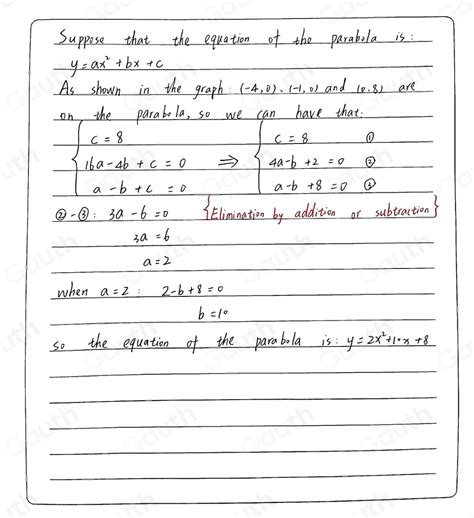 Suppose that the equation of the parabola is:
y = ax² + bx + c
As shown in the graph: (-4,0), (-1,0) and (0.8) are
on the parabola, so we can have that:
{ c = 8 ⇒ { c = 8 ①
16a-4b + c = 0 4a-b +2 = 0 ②
a - b + c = 0 a-b +8 = 0 ③
②-③: 3a - 6 = 0 {Elimination by addition or subtraction}
3a = 6
a = 2
when a = 2: 2-b+8 = 0
b = 10
so the equation of the parabola is: y = 2x²+10x +8
Gauth